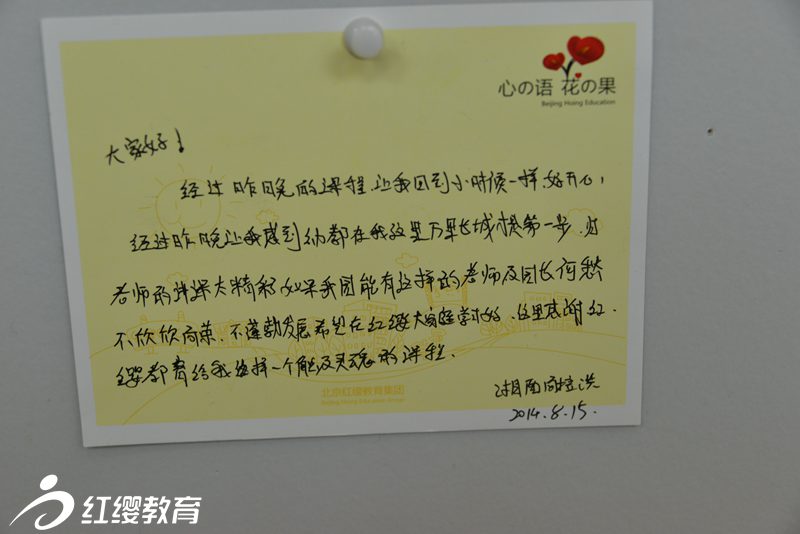 心の语 花の果
Beijing Hoing Education
大家好！
经过昨日晚的课程,让我回到小时候一样,好开心,
经过昨晚让我感到 都在我这里万里长城 第一步.
老师的讲课太精彩如果我园能有这样的老师及园长何愁
不欣欣向荣.不蓬勃发展希望在红缨大家庭 好.这里感谢红
缨教育给我 一个触及灵魂的课程.
湖南
2014.8.15.
北京红缨教育集团
Beijing Hoing Education Group
红缨教育